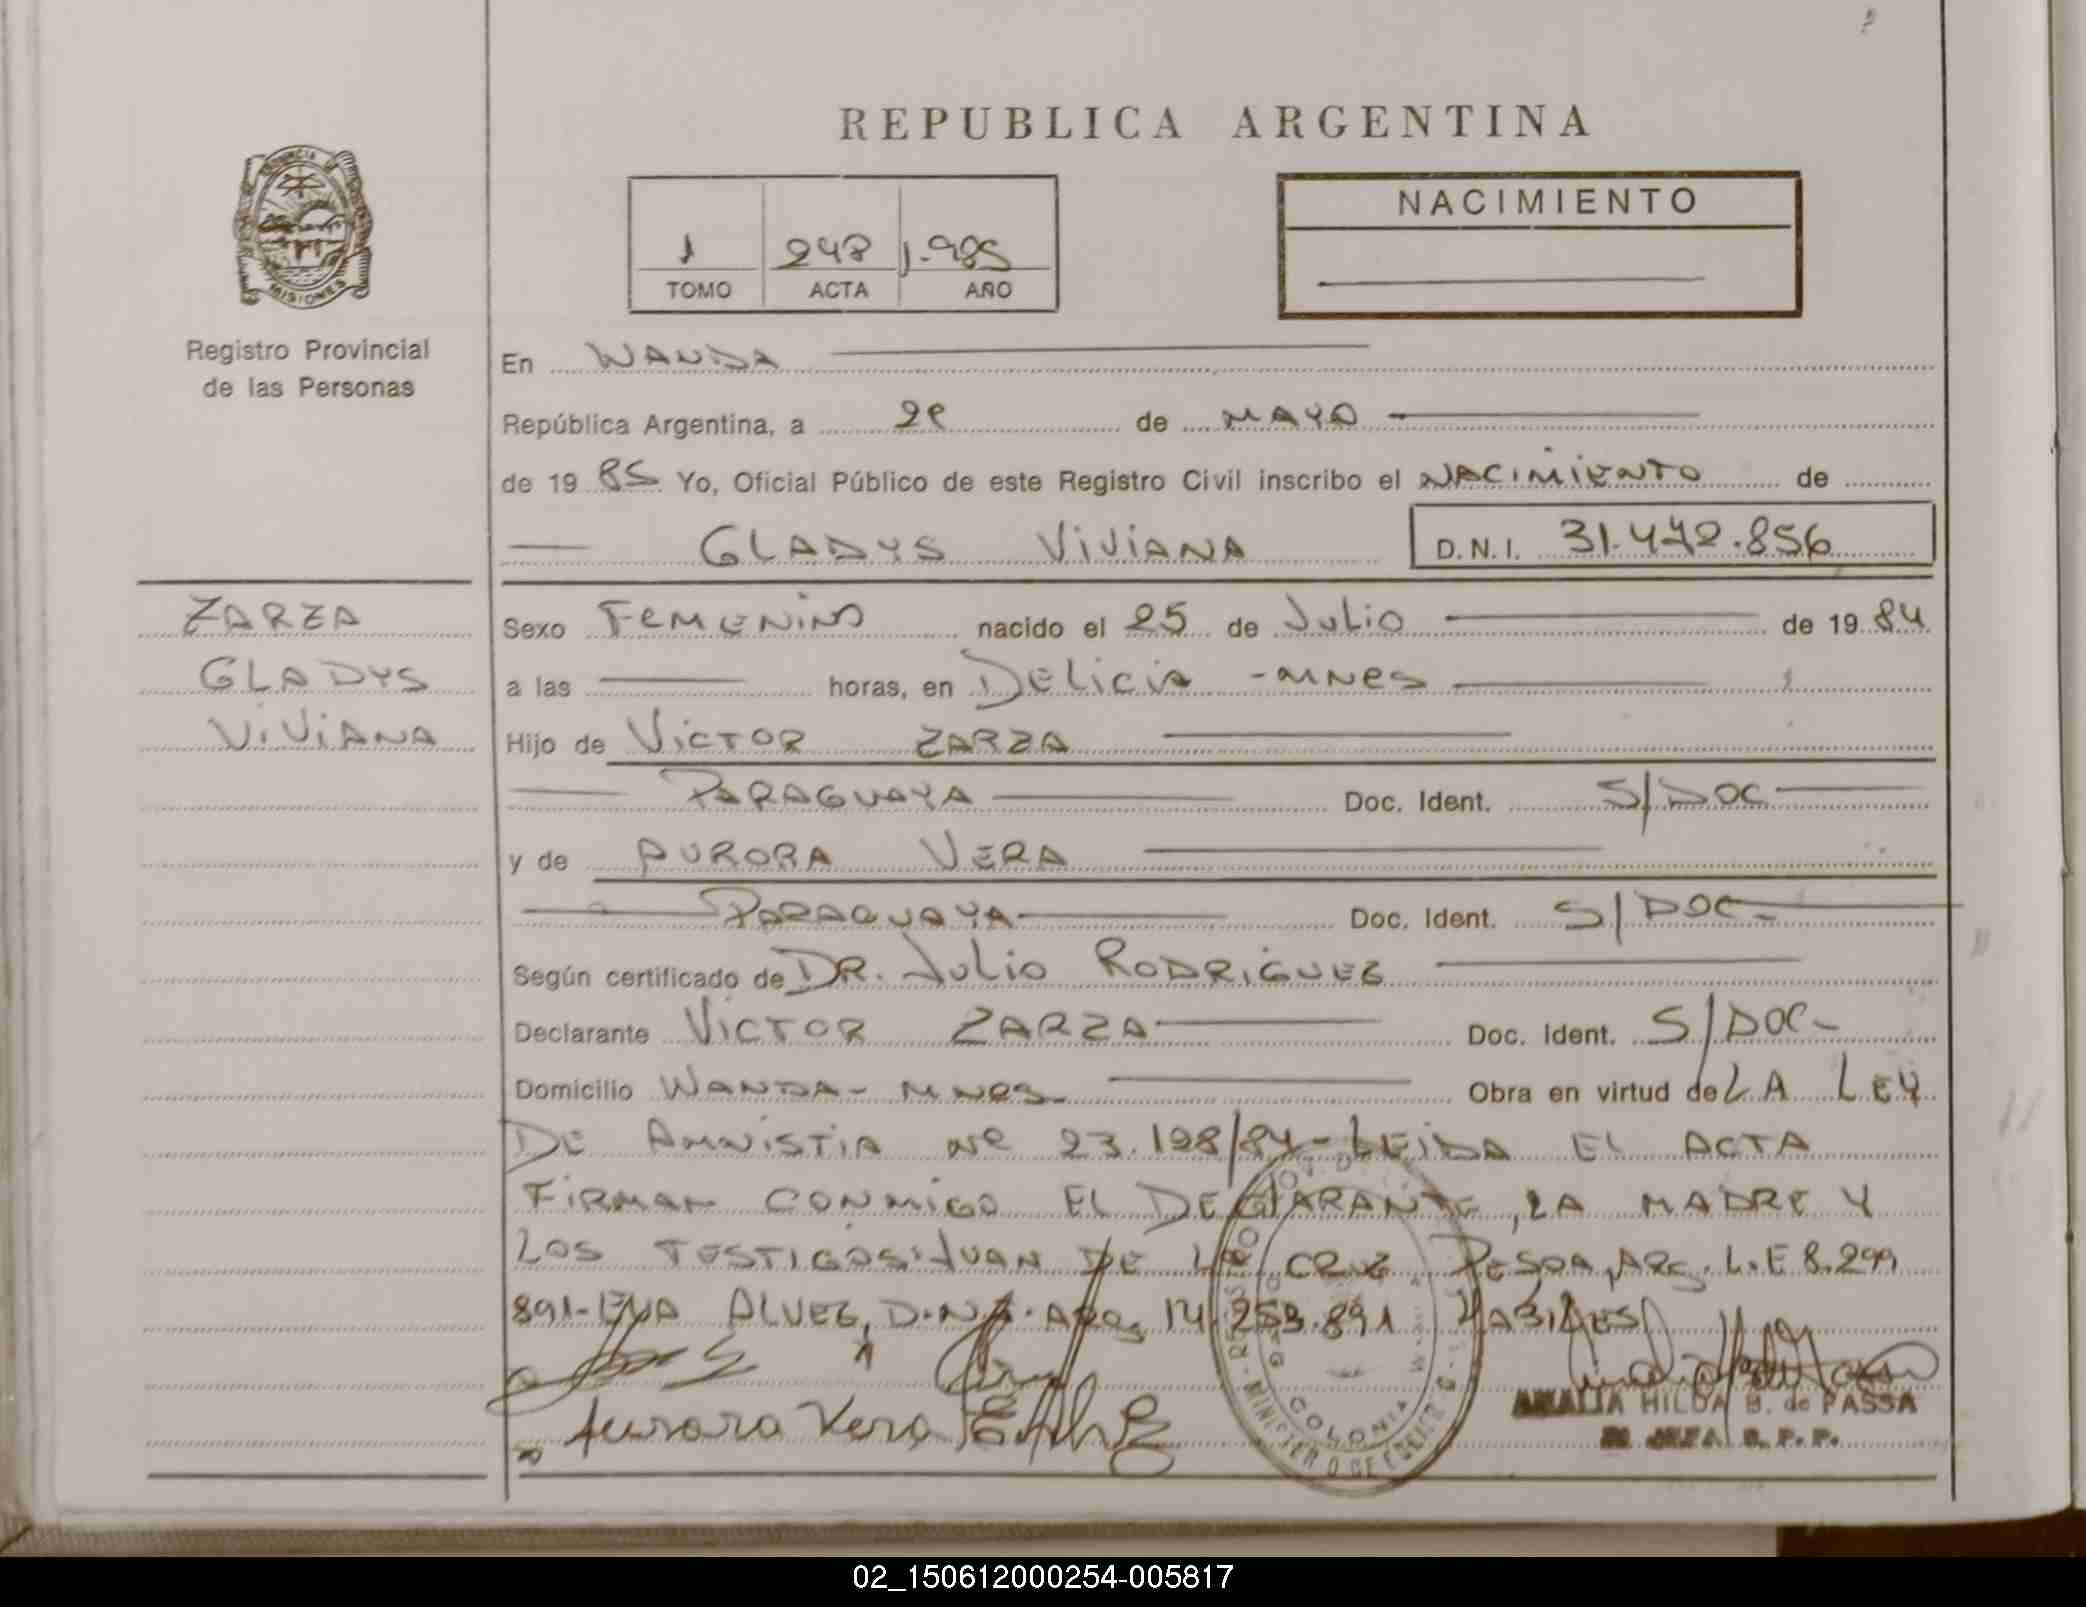 REPUBLICA ARGENTINA
NACIMIENTO
1 248 1.985
TOMO ACTA AÑO
PROVINCIA
MISIONES
Registro Provincial
de las Personas
En WANDA
República Argentina, a de MAYO
de 19 85 Yo, Oficial Público de este Registro Civil inscribo el NACIMIENTO de
GLADYS VIVIANA D.N.I. 31.472.856
ZARZA
GLADYS
VIVIANA
Sexo FEMENINO nacido el 25 de JULIO de 19 84
a las horas, en DELICIA - MNES
Hijo de VICTOR ZARZA
PARAGUAYA Doc. Ident. S/DOC
y de AURORA VERA
PARAGUAYA Doc. Ident. S/DOC-
Según certificado de DR. JULIO RODRIGUEZ
Declarante VICTOR ZARZA Doc. Ident. S/DOC-
Domicilio WANDA - MNES Obra en virtud de LA LEY
DE AMNISTIA Nº 23.198/84- LEIDA EL ACTA
FIRMAN CONMIGO EL DECLARANTE, LA MADRE Y
LOS TESTIGOS: JUAN DE LA CRUZ PESOA, ARG. L.E 8.299
891- EVA ALVEZ, D.N.I. ARG. 14.253.891 HABILES
Aurora Vera
COLONIA
MINISTERIO DE GOBIERNO
AMALIA HILDA B. de PASSA
JEFA R. P. P.
02_150612000254-005817